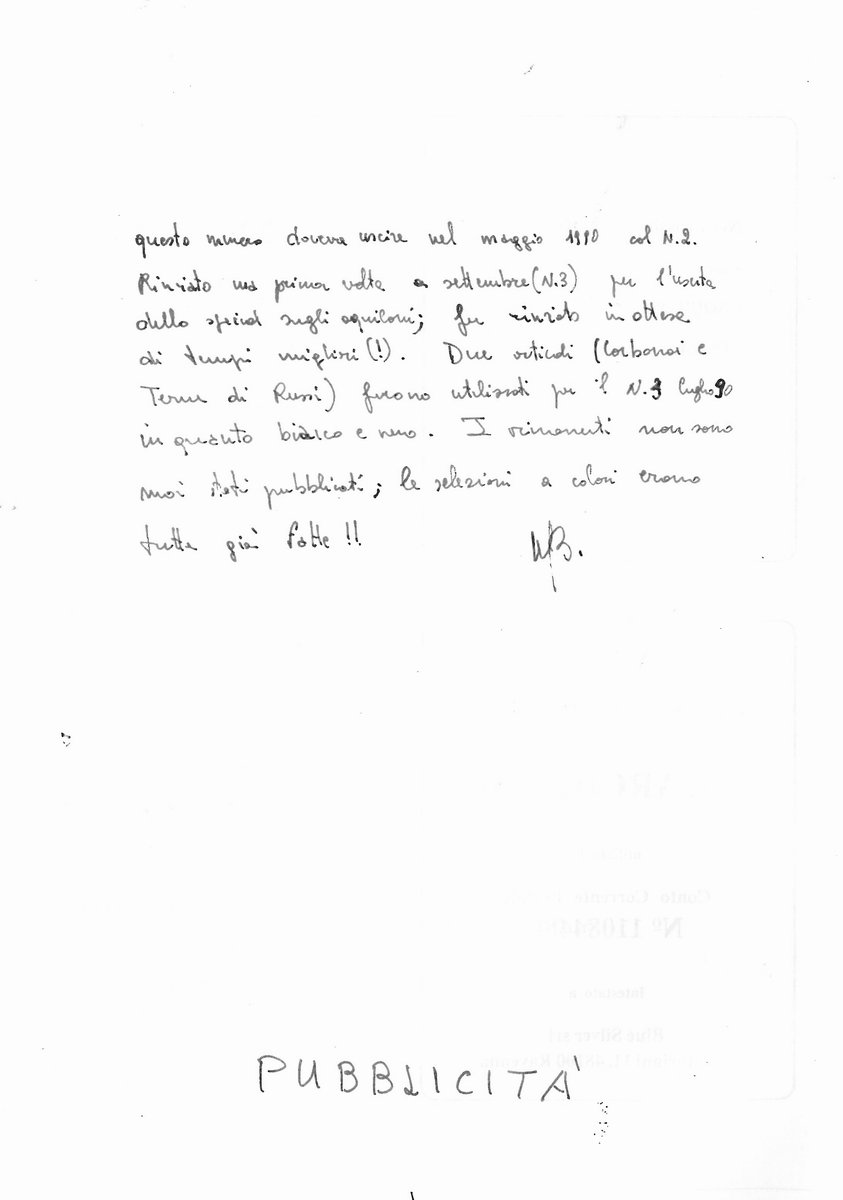 questo numero doveva uscire nel maggio 1990 col N.2.
Rinviato una prima volta a settembre (N.3) per l'uscita
dello special sugli aquiloni; fu rinviato in attesa
di tempi migliori (!). Due articoli (Carbonai e
Terme di Russi) furono utilizzati per il N.3 luglio 90
in quanto bianco e nero. I rimanenti non sono
mai stati pubblicati; le selezioni a colori erano
tutte già fatte !!
B.
Conto Corrente
Nº
Intestato a
Blue Silver srl
11, 48100 Ravenna
PUBBLICITÀ